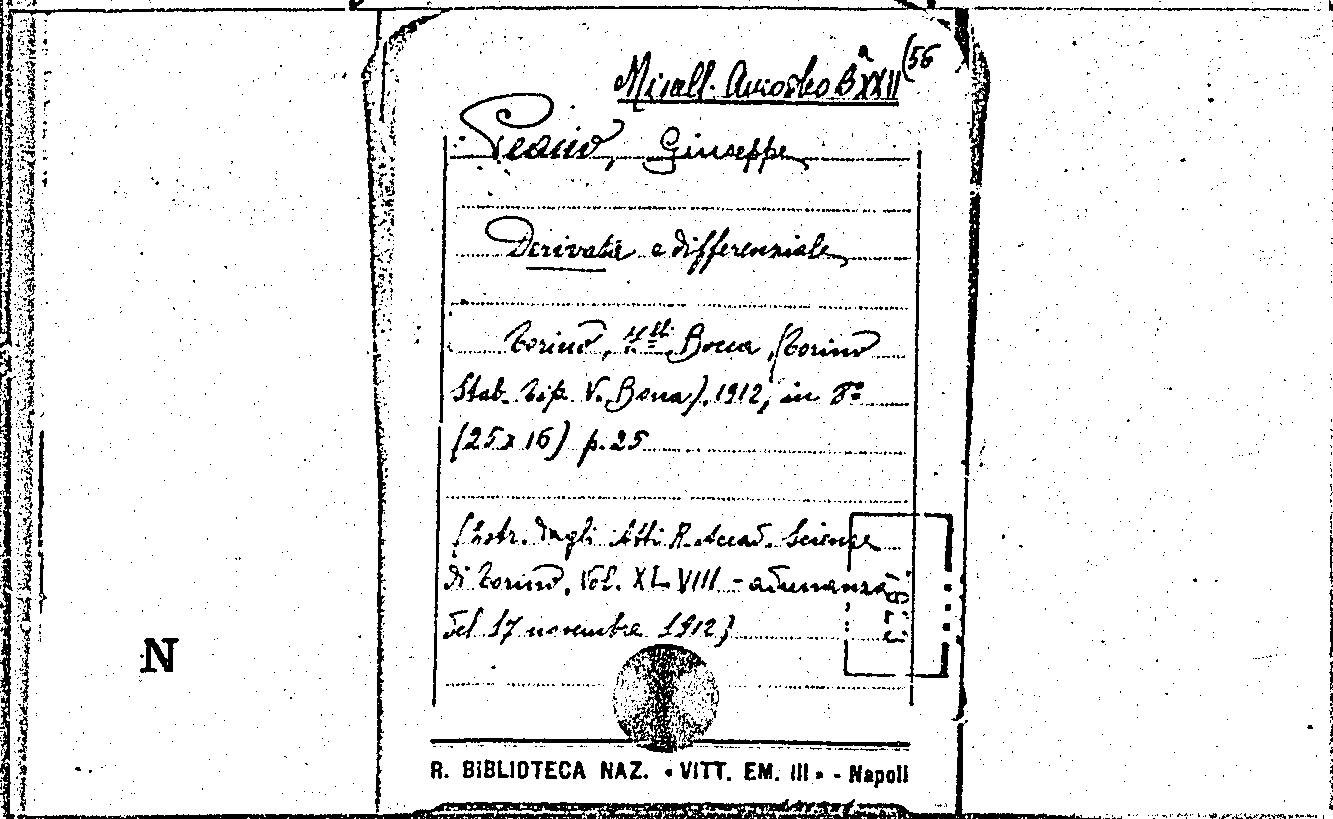 Miscell. Amodeo Bª XXII (56
Peano, Giuseppe
Derivata e differenziale
Torino, F.lli Bocca, (Torino
Stab. Tip. V. Bona), 1912, in 8º
(25x16) p. 25
(Estr. dagli Atti R. Accad. Scienze
di Torino, Vol. XLVIII - adunanza
del 17 novembre 1912)
N
R. BIBLIOTECA NAZ. « VITT. EM. III » - Napoli